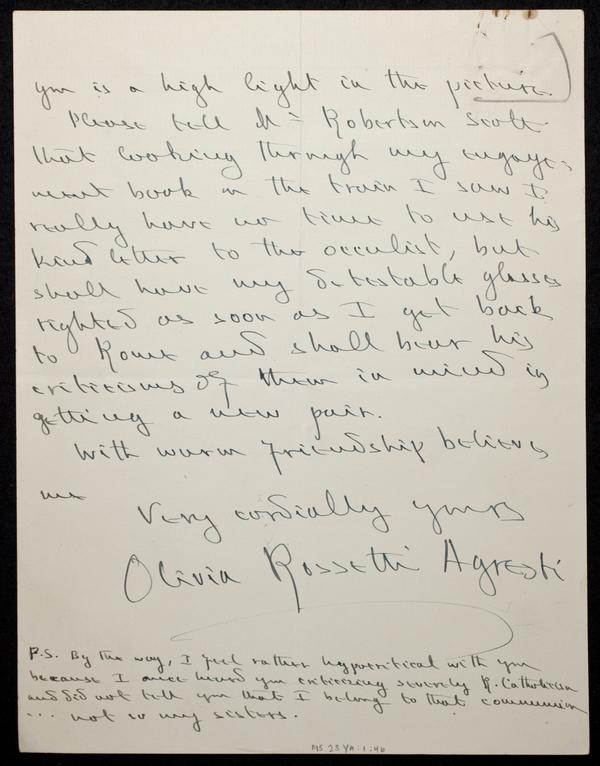 you is a high light in the picture.
Please tell Mr Robertson Scott
that looking through my engage-
ment book in the train I saw I
really have no time to use his
kind letter to the occulist, but
shall have my detestable glasses
righted as soon as I get back
to Rome and shall bear his
criticisms of them in mind in
getting a new pair.
With warm friendship believe
me
Very cordially yours
Olivia Rossetti Agresti
P.S. By the way, I feel rather hypocritical with you
because I once heard you criticising severely R. Catholicism
and did not tell you that I belong to that communion
... not so my sisters.
MS.23 YA:1.46